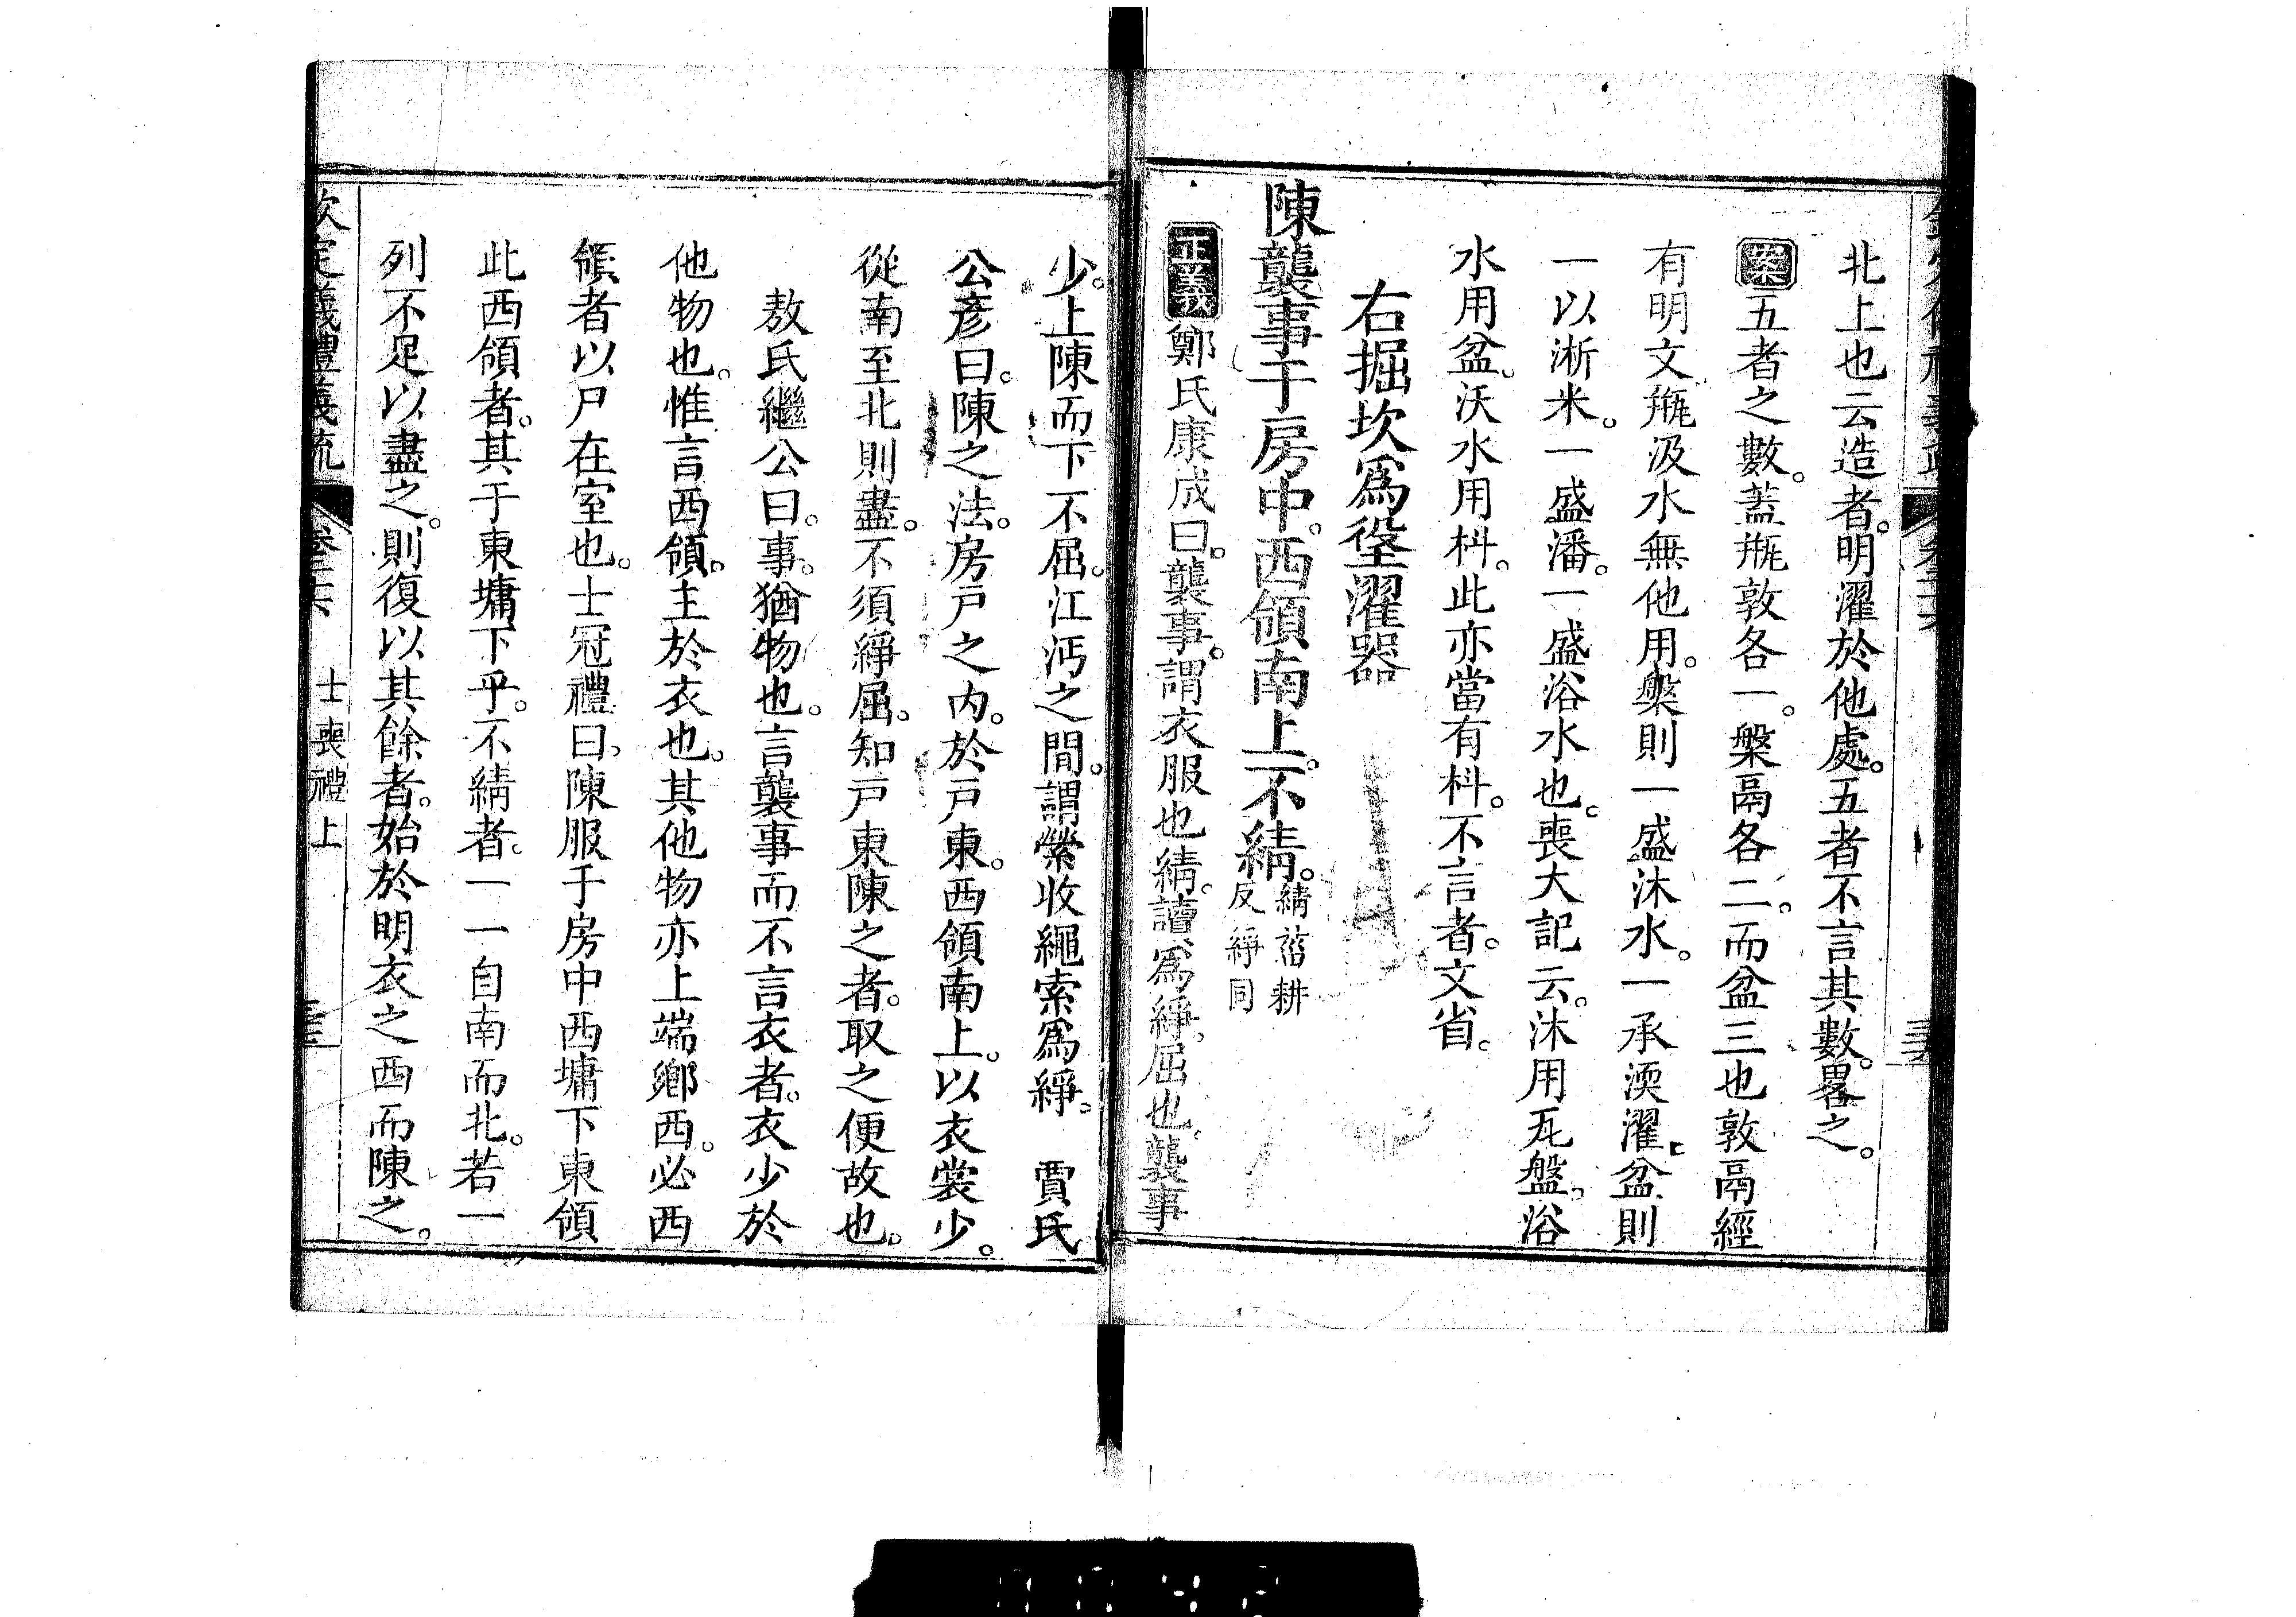 北上也云造者。明濯於他處。五者不言其數。畧之。
案五者之數。蓋甁敦各一。槃鬲各二。而盆三也敦鬲經
有明文甁汲水無他用。槃則一盛沐水。一承渜濯。盆則
一以淅米。一盛潘。一盛浴水也。喪大記云。沐用瓦盤。浴
水用盆。沃水用枓。此亦當有枓。不言者。文省。
右掘坎爲垼濯器
陳襲事于房中。西領南上。不綪。綪莤耕
反綪同
正義鄭氏康成曰。襲事。謂衣服也綪。讀爲綪。屈也。襲事
少。上陳而下不屈。江沔之間。謂縈收繩索爲綪。　賈氏
公彦曰。陳之法。房戸之內。於戸東。西領南上。以衣裳少。
從南至北則盡。不須綪屈。知戸東陳之者。取之便故也。
敖氏繼公曰。事。猶物也。言襲事而不言衣者。衣少於
他物也。惟言西領。主於衣也。其他物亦上端鄉西。必西
領者以尸在室也。士冠禮曰。陳服于房中西墉下東領
此西領者。其于東墉下乎。不綪者。一一自南而北。若一
列不足以盡之。則復以其餘者。始於明衣之西而陳之。
欽定儀禮義疏　士喪禮上